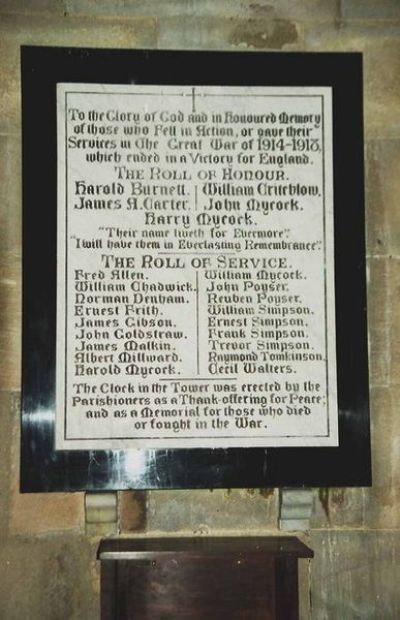 To the Glory of God and in Honoured Memory
of those who Fell in Action, or gave their
Services in The Great War of 1914-1918,
which ended in a Victory for England.
THE ROLL OF HONOUR.
Harold Burnett. William Critchlow.
James A. Carter. John Mycock.
Harry Mycock.
"Their name liveth for Evermore".
"I will have them in Everlasting Remembrance".
THE ROLL OF SERVICE.
Fred Allen. William Mycock.
William Chadwick. John Poyser.
Norman Denham. Reuben Poyser.
Ernest Frith. William Simpson.
James Gibson. Ernest Simpson.
John Goldstraw. Frank Simpson.
James Malkin. Trevor Simpson.
Albert Millward. Raymond Tomkinson.
Harold Mycock. Cecil Walters.
The Clock in the Tower was erected by the
Parishioners as a Thank-offering for Peace;
and as a Memorial for those who died
or fought in the War.